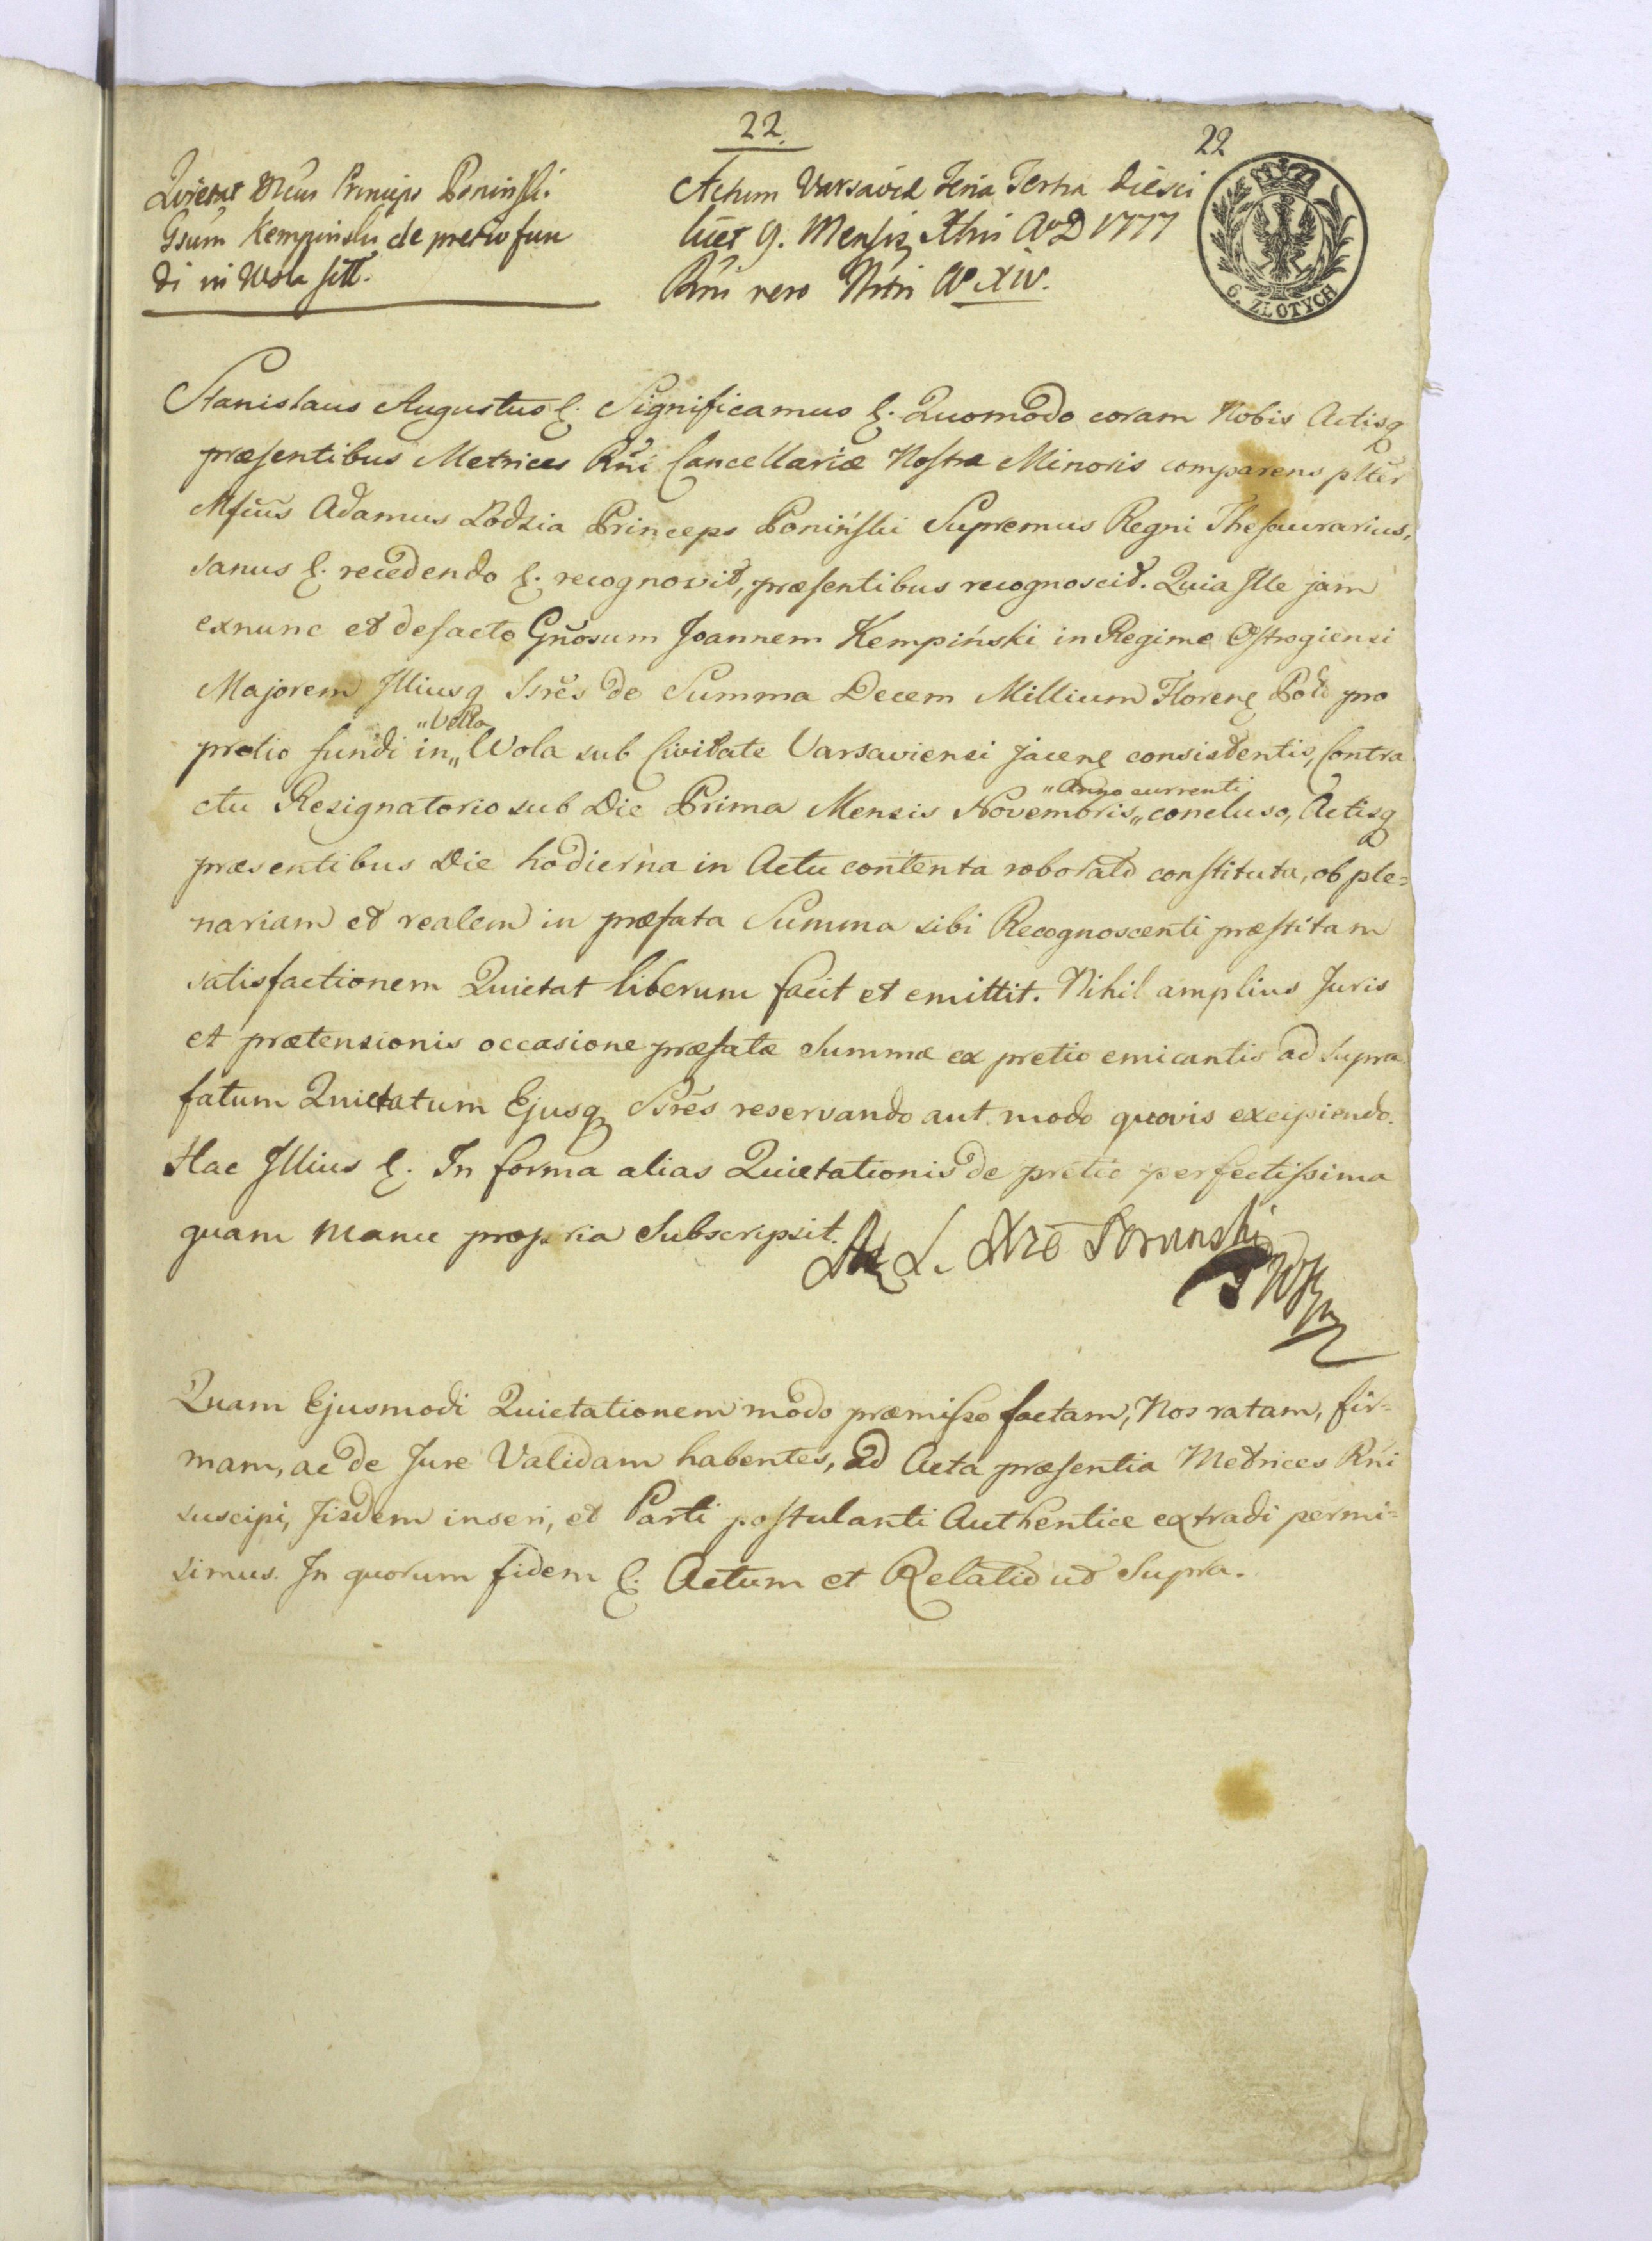 22.
22
Quietat Mcus Princeps Poniński
Gsum Kempinski de pretio fun
di in Wola sitt.
Actum Varsaviæ Feria Tertia diesci
licet 9. Mensis Xbris A°D 1777
Rni vero Nstri A° XIV.
6. ZŁOTYCH
Stanislaus Augustus &. Significamus &. Quomodo coram Nobis Actisq
præsentibus Metrices Rni Cancellariæ Nostræ Minoris comparens plter
Mfcus Adamus Lodzia Princeps Poniński Supremus Regni Thesaurarius,
sanus &. recedendo &. recognovit, præsentibus recognoscit. Quia Ille jam
exnunc et defacto Gnosum Joannem Kempiński in Regime Ostrogiensi
Majorem Illiusq Ssres de Summa Decem Millium Floren Pold pro
pretio fundi in „Wola sub Civitate Varsaviensi jacen consistentis, Contra
„Villa
ctu Resignatorio sub Die Prima Mensis Novembris „ concluso, Actisq
„Anno currenti
præsentibus Die hodierna in Actu contenta roborato constituta, ob ple=
nariam et realem in præfata Summa sibi Recognoscenti præstitam
satisfactionem Quietat liberum facit et emittit. Nihil amplius Juris
et prætensionis occasione præfatæ Summæ ex pretio emicantis ad supra
fatum Quietatum Ejusq Ssres reservando aut modo quovis excipiendo.
Hac Illius &. In forma alias Quietationis de pretio perfectissima
quam Manu propria Subscripsit.
Quam Ejusmodi Quietationem modo præmisso factam, Nos ratam, fir=
mam, ac de Jure Validam habentes, ad Acta præsentia Metrices Rni
suscipi, Iisdem inseri, et Parti postulanti Authentice extradi permi=
simus. In quorum fidem &. Actum et Relatio ut Supra.